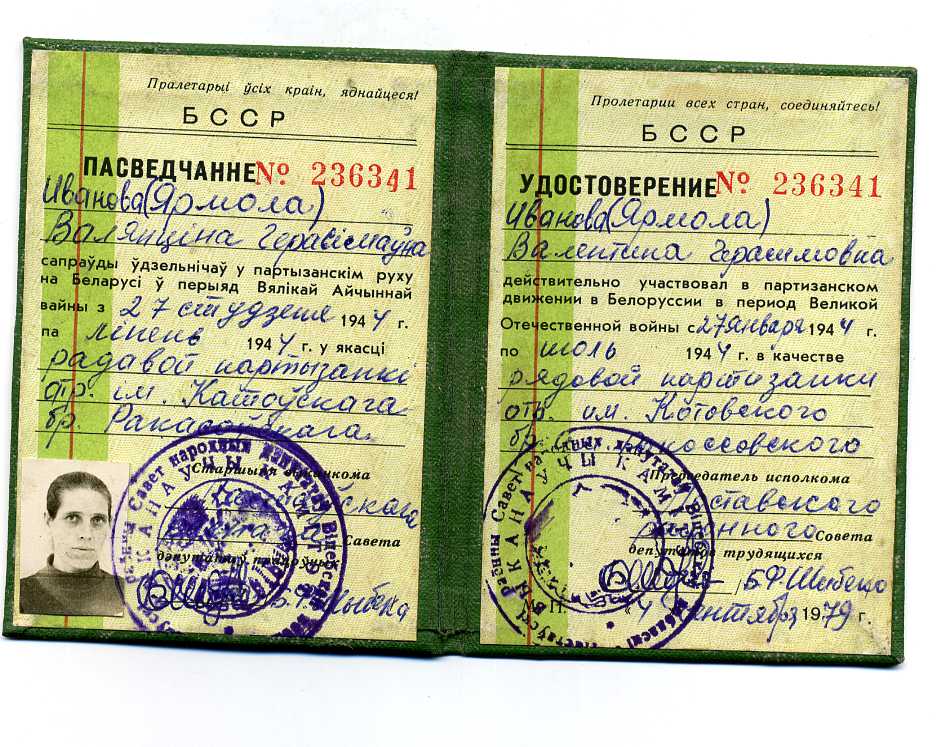 Пралетарыі ўсіх краін, яднайцеся!
БССР
ПАСВЕДЧАННЕ № 236341
Иванова (Ярмола)
Валянціна Герасімаўна
сапраўды ўдзельнічаў у партызанскім руху
на Беларусі ў перыяд Вялікай Айчыннай
вайны з 27 студзеня 1944 г.
па ліпень 1944 г. у якасці
радавой партызанкі
отр. ім. Катоўскага
бр. Ракасоўскага
Старшыня выканкома
Савета
дэпутатаў працоўных
Пролетарии всех стран, соединяйтесь!
БССР
УДОСТОВЕРЕНИЕ № 236341
Иванова (Ярмола)
Валентина Герасимовна
действительно участвовал в партизанском
движении в Белоруссии в период Великой
Отечественной войны с 27 января 1944 г.
по июль 1944 г. в качестве
рядовой партизанки
отр. им. Котовского
бр. Рокоссовского
Председатель исполкома
Поставского
районного Совета
депутатов трудящихся
Б.Ф. Шебеко
14 сентября 1979 г.